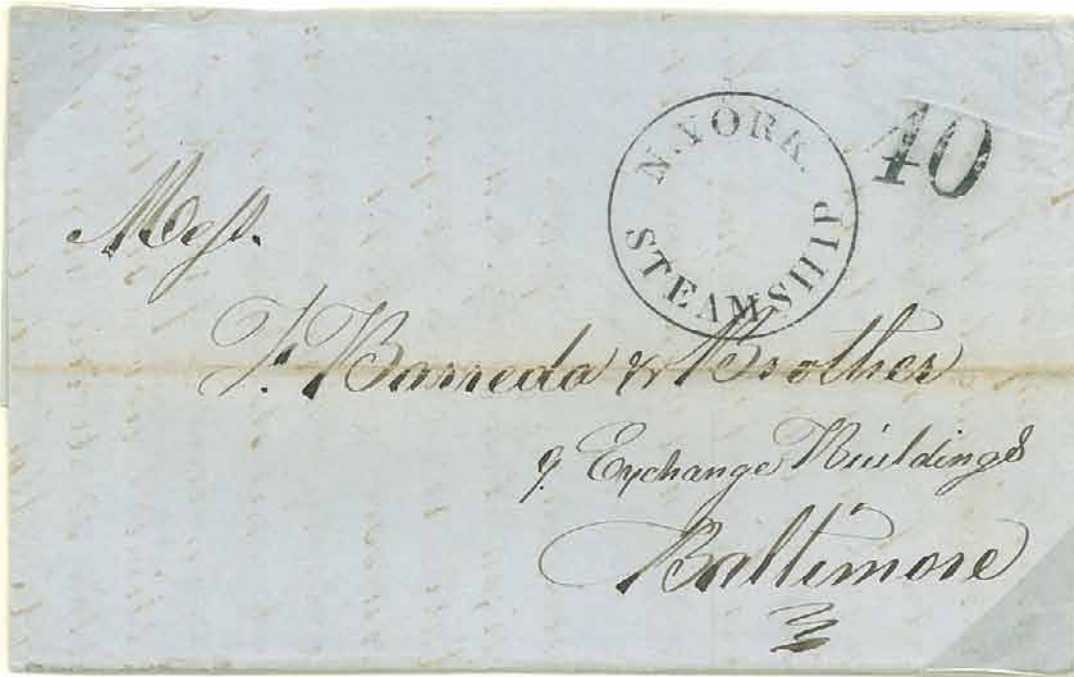 N. YORK.
STEAMSHIP
40
Mess.
F. Barreda & Brother
9. Exchange Buildings
Baltimore